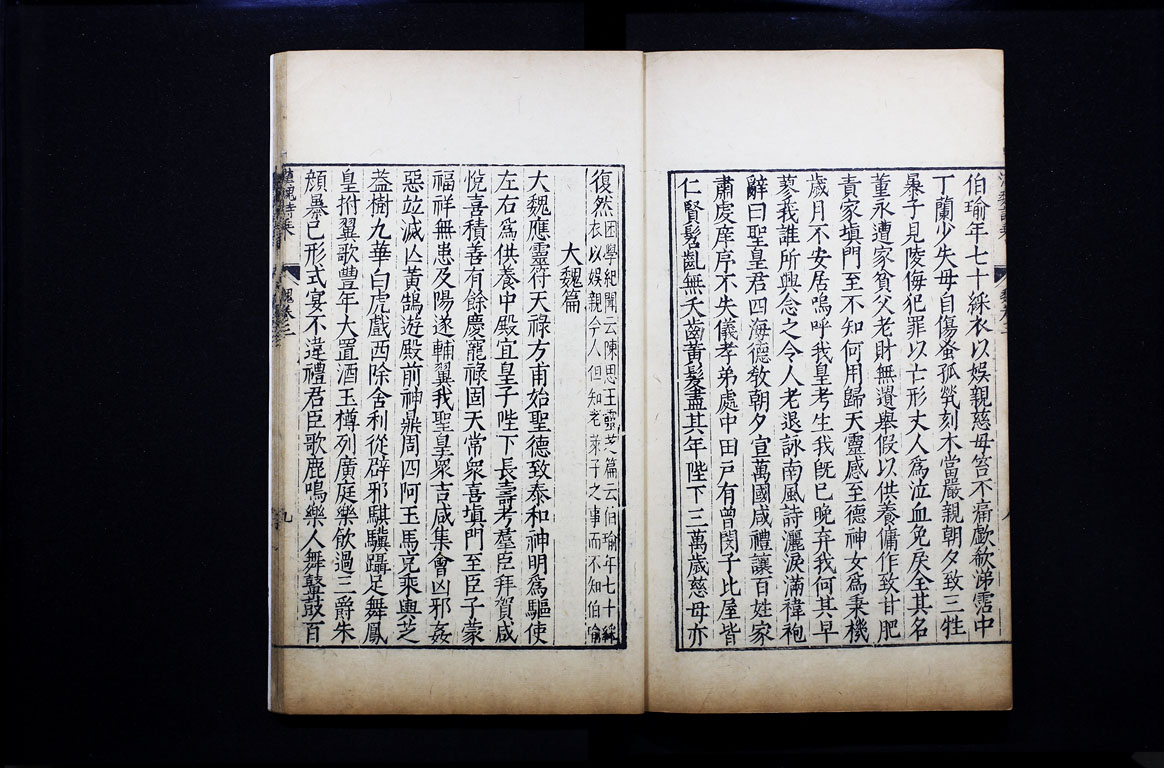 伯瑜年七十綵衣以娛親慈母笞不痛歔欷涕霑巾
丁蘭少失母自傷蚤孤煢刻木當嚴親朝夕致三牲
暴子見陵侮犯罪以亡形丈人為泣血免戾全其名
董永遭家貧父老財無遺舉假以供養傭作致甘肥
責家填門至不知何用歸天靈感至德神女為秉機
歲月不安居嗚呼我皇考生我旣已晚弃我何其早
蓼莪誰所興念之令人老退詠南風詩灑淚滿褘袍
辭曰聖皇君四海德敎朝夕宣萬國咸禮讓百姓家
肅虔庠序不失儀孝弟處中田戸有曾閔子比屋皆
仁賢髫齓無夭齒黃髮盡其年陛下三萬歲慈母亦
復然
困學紀聞云陳思王靈芝篇云伯瑜年七十綵
衣以娛親今人但知老萊子之事而不知伯瑜
大魏篇
大魏應靈符天祿方甫始聖德致泰和神明為驅使
左右為供養中殿宜皇子陛下長壽考羣臣拜賀咸
悅喜積善有餘慶寵祿固天常衆喜填門至臣子蒙
福祥無患及陽遂輔翼我聖皇衆吉咸集會凶邪姦
惡並滅亾黃鵠遊殿前神鼎周四阿玉馬充乘輿芝
葢樹九華白虎戲西除舍利從辟邪騏驥躡足舞鳳
皇拊翼歌豐年大置酒玉樽列廣庭樂飲過三爵朱
顏暴己形式宴不違禮君臣歌鹿鳴樂人舞鼙鼓百
魏卷三
九